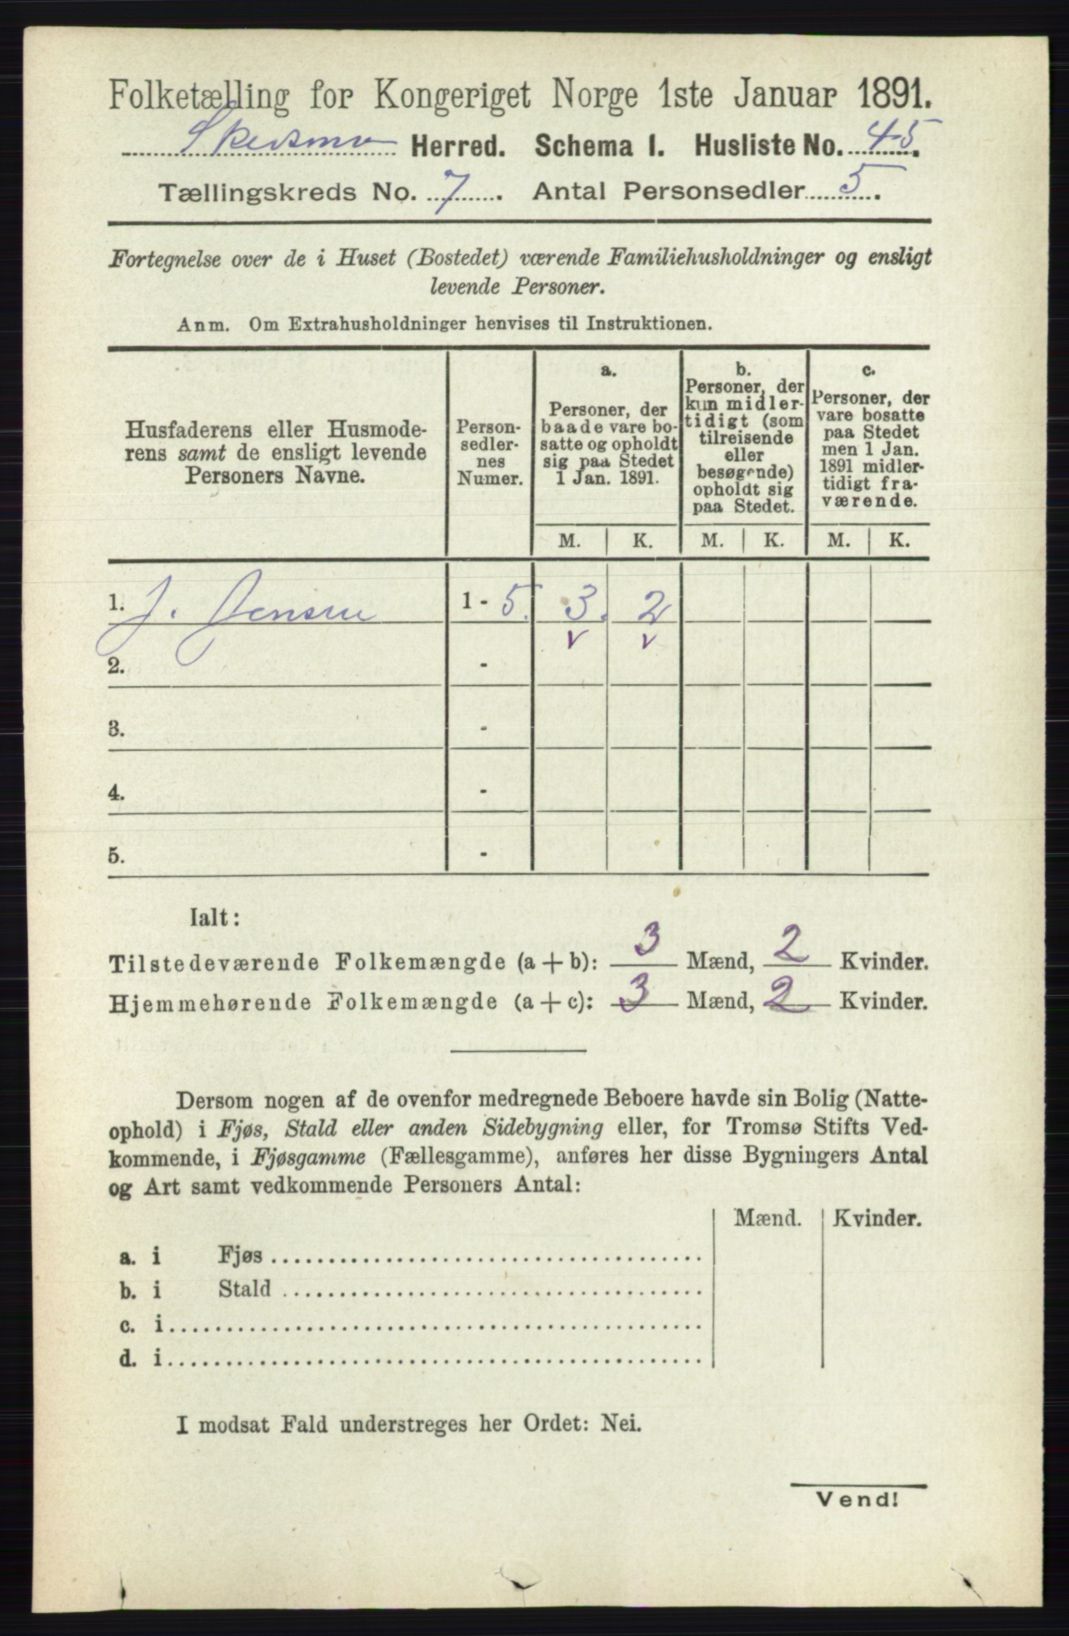 Folketælling for Kongeriget Norge 1ste Januar 1891.
Skedsmo Herred. Schema I. Husliste No. 45.
Tællingskreds No. 7. Antal Personsedler 5.
Fortegnelse over de i Huset (Bostedet) værende Familiehusholdninger og ensligt
levende Personer.
Anm. Om Extrahusholdninger henvises til Instruktionen.
Husfaderens eller Husmode-
rens samt de ensligt levende
Personers Navne.
Person-
sedler-
nes
Numer.
a.
Personer, der
baade vare bo-
satte og opholdt
sig paa Stedet
1 Jan. 1891.
b.
Personer, der
kun midler-
tidigt (som
tilreisende
eller
besøgende)
opholdt sig
paa Stedet.
c.
Personer, der
vare bosatte
paa Stedet
men 1 Jan.
1891 midler-
tidigt fra-
værende.
M. K. M. K. M. K.
1. J. Jensen 1 - 5. 3. 2
2. -
3. -
4. -
5. -
Ialt:
Tilstedeværende Folkemængde (a + b): 3 Mænd, 2 Kvinder.
Hjemmehørende Folkemængde (a + c): 3 Mænd, 2 Kvinder.
Dersom nogen af de ovenfor medregnede Beboere havde sin Bolig (Natte-
ophold) i Fjøs, Stald eller anden Sidebygning eller, for Tromsø Stifts Ved-
kommende, i Fjøsgamme (Fællesgamme), anføres her disse Bygningers Antal
og Art samt vedkommende Personers Antal:
Mænd. Kvinder.
a. i Fjøs
b. i Stald
c. i
d. i
I modsat Fald understreges her Ordet: Nei.
Vend!